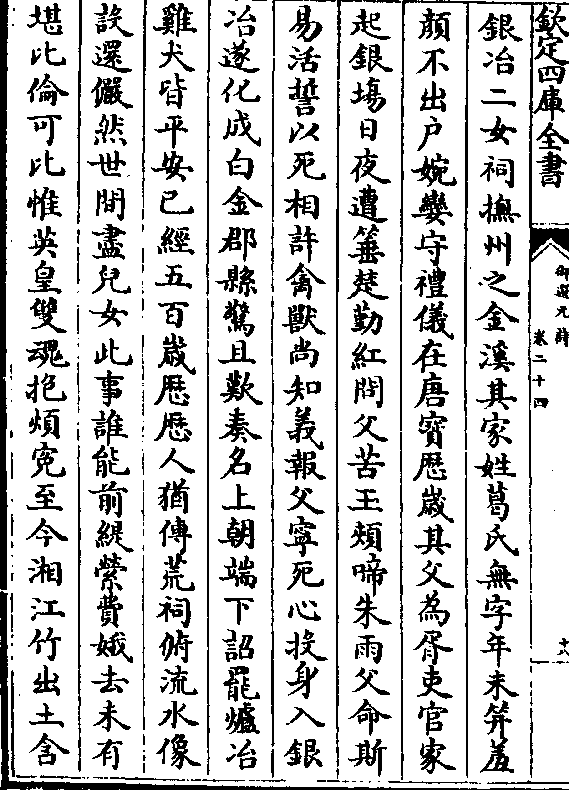 欽定四庫全書
御選元詩
卷二十四
十八
銀冶二女祠撫州之金溪其家姓葛氏無字年未笄羞
顔不出户婉孌守禮儀在唐寳厯嵗其父為胥吏官家
起銀塲日夜遭箠楚勤紅問父苦玉頰啼朱雨父命斯
易活誓以死相許禽獸尚知義報父寧死心投身入銀
冶遂化成白金郡縣驚且歎奏名上朝端下詔罷爐冶
雞犬皆平安已經五百嵗厯厯人猶傳荒祠俯流水像
設還儼然世間盡兒女此事誰能前緹縈費娥去未有
堪比倫可比惟英皇雙魂抱煩寃至今湘江竹出土含